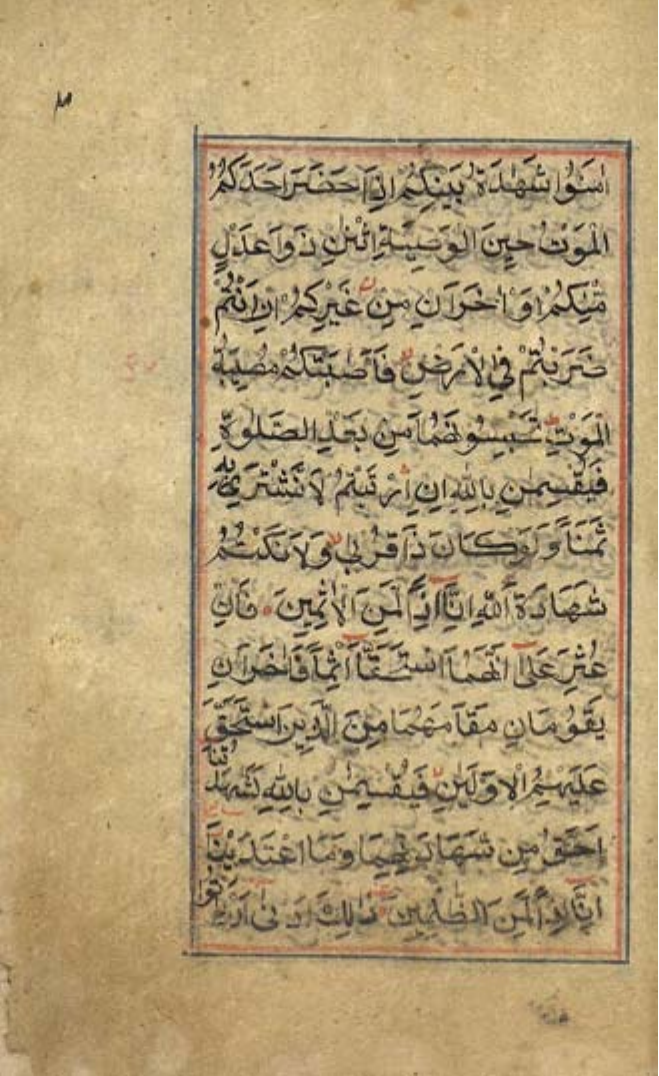 اٰمَنُوا شَهٰدَةُ بَيْنِكُمْ اِذَا حَضَرَ اَحَدَكُمُ
الْمَوْتُ حِينَ الْوَصِيَّةِ اثْنٰنِ ذَوَا عَدْلٍ
مِّنْكُمْ اَوْ اٰخَرَانِ مِنْ غَيْرِكُمْ اِنْ اَنْتُمْ
ضَرَبْتُمْ فِي الْاَرْضِ فَاَصٰبَتْكُمْ مُصِيبَةُ
الْمَوْتِ تَحْبِسُونَهُمَا مِنْ بَعْدِ الصَّلٰوةِ
فَيُقْسِمٰنِ بِاللّٰهِ اِنِ ارْتَبْتُمْ لَا نَشْتَرِي بِهِ
ثَمَنًا وَلَوْ كَانَ ذَا قُرْبٰى وَلَا نَكْتُمُ
شَهَادَةَ اللّٰهِ اِنَّا اِذًا لَمِنَ الْاٰثِمِينَ فَاِنْ
عُثِرَ عَلٰى اَنَّهُمَا اسْتَحَقَّا اِثْمًا فَاٰخَرَانِ
يَقُومَانِ مَقَامَهُمَا مِنَ الَّذِينَ اسْتَحَقَّ
عَلَيْهِمُ الْاَوْلَيٰنِ فَيُقْسِمٰنِ بِاللّٰهِ لَشَهَادَتُنَا
اَحَقُّ مِنْ شَهَادَتِهِمَا وَمَا اعْتَدَيْنَا
اِنَّا اِذًا لَمِنَ الظّٰلِمِينَ ذٰلِكَ اَدْنٰى اَنْ يَاْتُوا